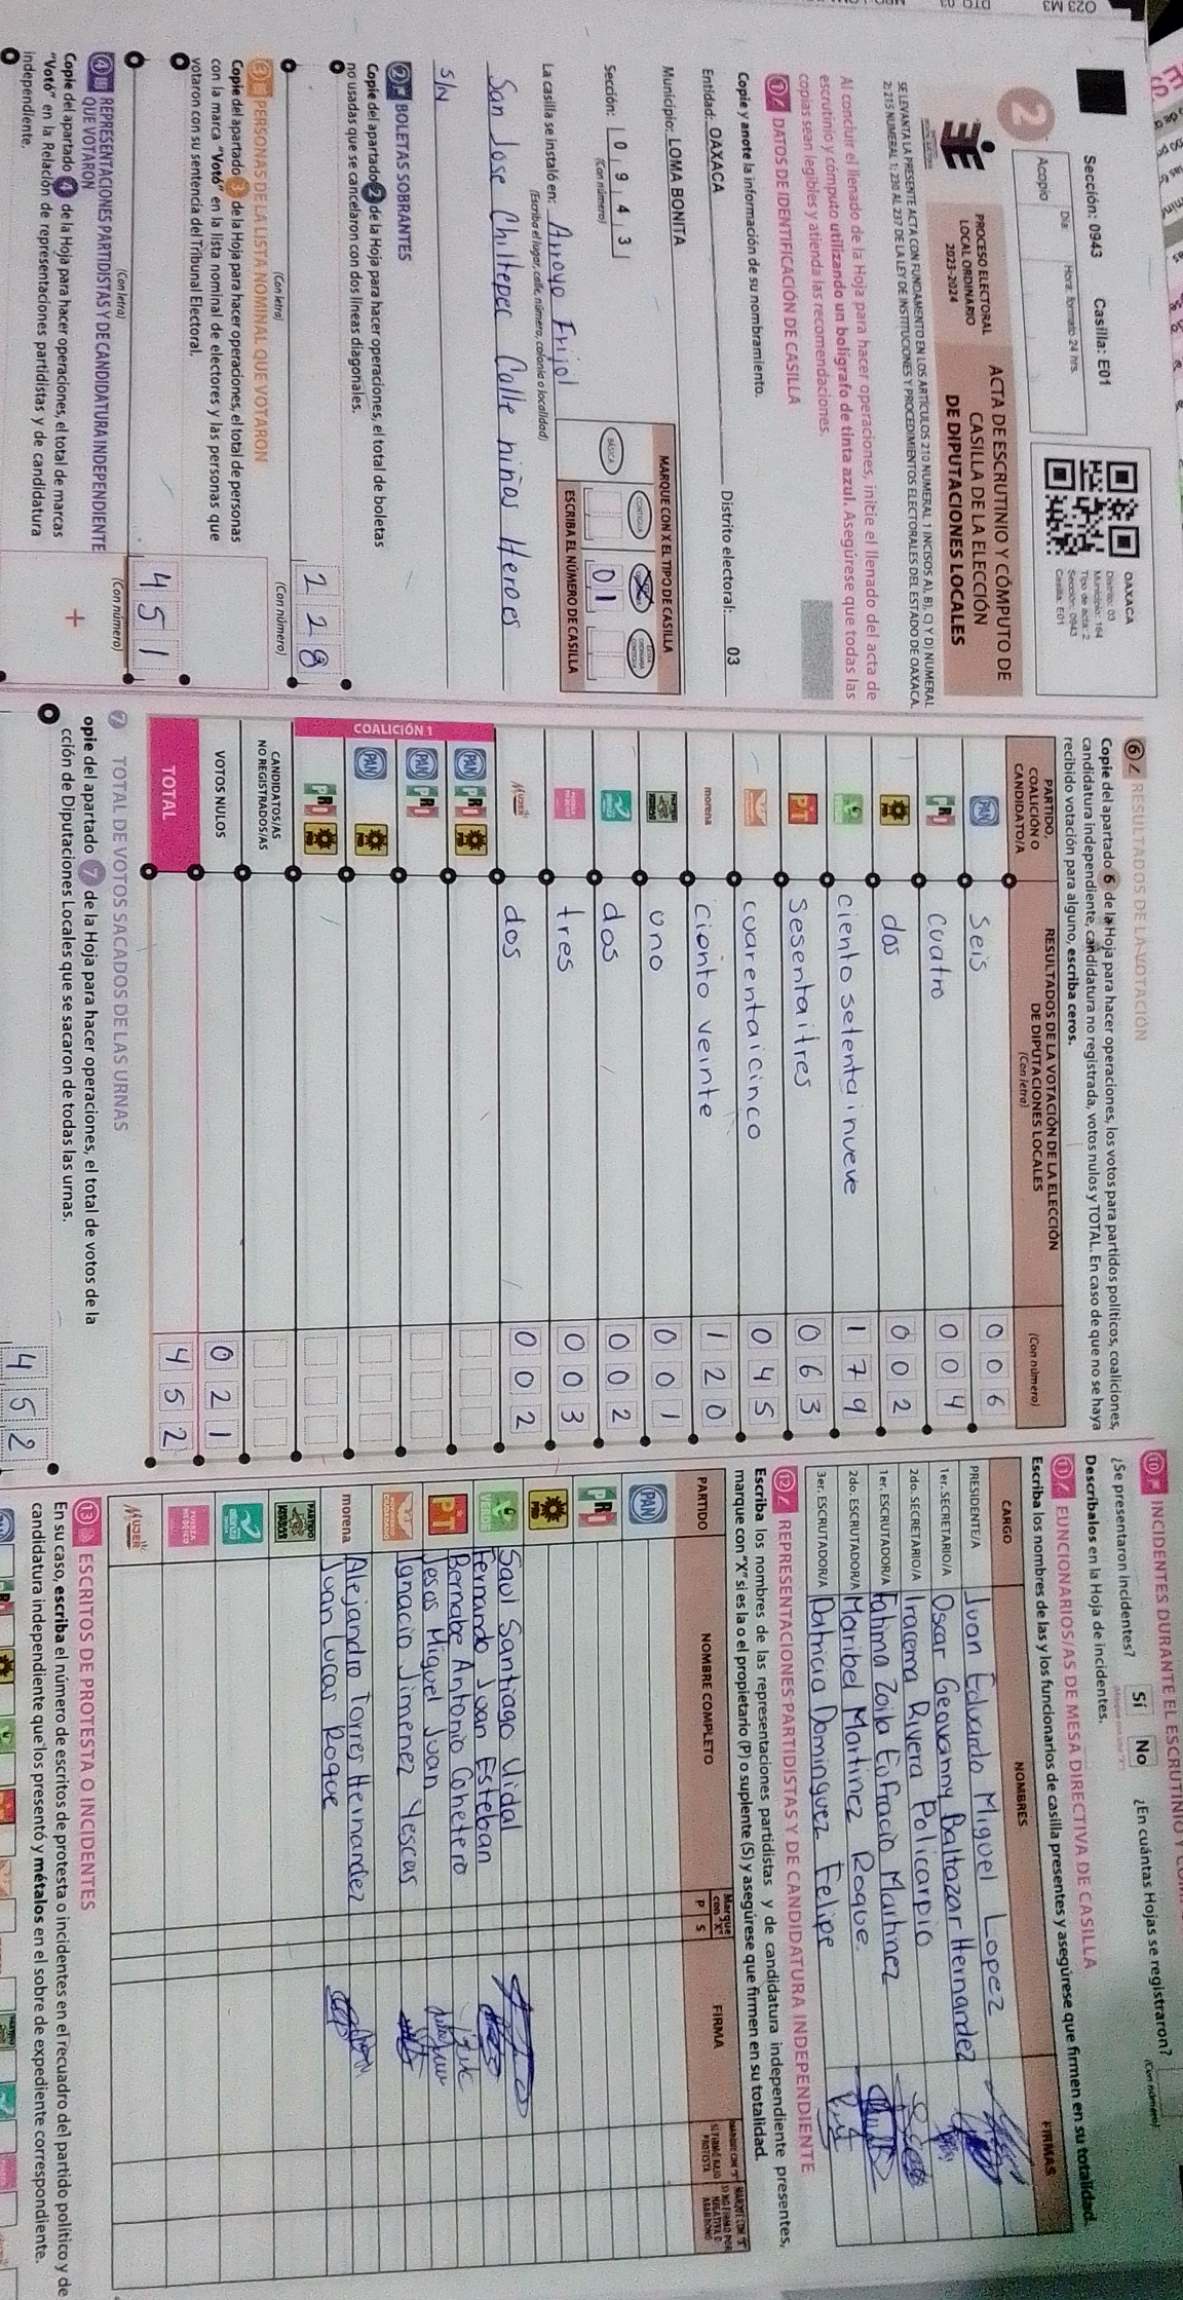 O23 M3
Sección: 0943 Casilla: E01
Día: Hora: formato 24 hrs.
Acopio
2
OAXACA
Distrito: 03
Municipio: 164
Tipo de acta: 2
Sección: 0943
Casilla: E01
PROCESO ELECTORAL
LOCAL ORDINARIO
2023-2024
ACTA DE ESCRUTINIO Y CÓMPUTO DE
CASILLA DE LA ELECCIÓN
DE DIPUTACIONES LOCALES
SE LEVANTA LA PRESENTE ACTA CON FUNDAMENTO EN LOS ARTÍCULOS 210 NUMERAL 1 INCISOS A), B), C) Y D) NUMERAL
2; 215 NUMERAL 1; 230 AL 237 DE LA LEY DE INSTITUCIONES Y PROCEDIMIENTOS ELECTORALES DEL ESTADO DE OAXACA.
Al concluir el llenado de la Hoja para hacer operaciones, inicie el llenado del acta de
escrutinio y cómputo utilizando un bolígrafo de tinta azul. Asegúrese que todas las
copias sean legibles y atienda las recomendaciones.
1 DATOS DE IDENTIFICACIÓN DE CASILLA
Copie y anote la información de su nombramiento.
Entidad: OAXACA Distrito electoral: 03
Municipio: LOMA BONITA
Sección: 0 9 4 3
(Con número)
MARQUE CON X EL TIPO DE CASILLA
BÁSICA CONTIGUA
0 1
ESCRIBA EL NÚMERO DE CASILLA
La casilla se instaló en: Arroyo Frijol
(Escriba el lugar, calle, número, colonia o localidad)
San Jose Chiltepec Calle niños Heroes
S/N
2 BOLETAS SOBRANTES
Copie del apartado 2 de la Hoja para hacer operaciones, el total de boletas
no usadas que se cancelaron con dos líneas diagonales.
2 2 8
(Con letra) (Con número)
3 PERSONAS DE LA LISTA NOMINAL QUE VOTARON
Copie del apartado 3 de la Hoja para hacer operaciones, el total de personas
con la marca "Votó" en la lista nominal de electores y las personas que
votaron con su sentencia del Tribunal Electoral.
4 5 1
(Con letra) (Con número)
4 REPRESENTACIONES PARTIDISTAS Y DE CANDIDATURA INDEPENDIENTE
QUE VOTARON
Copie del apartado 4 de la Hoja para hacer operaciones, el total de marcas
"Votó" en la Relación de representaciones partidistas y de candidatura
independiente.
+
6 RESULTADOS DE LA VOTACIÓN
Copie del apartado 6 de la Hoja para hacer operaciones, los votos para partidos políticos, coaliciones,
candidatura independiente, candidatura no registrada, votos nulos y TOTAL. En caso de que no se haya
recibido votación para alguno, escriba ceros.
PARTIDO, COALICIÓN O CANDIDATO/A
RESULTADOS DE LA VOTACIÓN DE LA ELECCIÓN
DE DIPUTACIONES LOCALES
(Con letra) (Con número)
PAN Seis 0 0 6
PRI cuatro 0 0 4
PRD dos 0 0 2
VERDE ciento setentainueve 1 7 9
PT Sesentaitres 0 6 3
cuarentaicinco 0 4 5
morena ciento veinte 1 2 0
uno 0 0 1
dos 0 0 2
tres 0 0 3
MUJER dos 0 0 2
COALICIÓN 1
PAN PRI PRD
PAN PRI
PAN PRD
PRI PRD
CANDIDATOS/AS
NO REGISTRADOS/AS
VOTOS NULOS 0 2 1
TOTAL 4 5 2
7 TOTAL DE VOTOS SACADOS DE LAS URNAS
opie del apartado 7 de la Hoja para hacer operaciones, el total de votos de la
cción de Diputaciones Locales que se sacaron de todas las urnas.
4 5 2
10 INCIDENTES DURANTE EL ESCRUTINIO Y
¿Se presentaron incidentes? Sí No ¿En cuántas Hojas se registraron?
(Con número)
Descríbalos en la Hoja de incidentes.
11 FUNCIONARIOS/AS DE MESA DIRECTIVA DE CASILLA
Escriba los nombres de las y los funcionarios de casilla presentes y asegúrese que firmen en su totalidad.
CARGO NOMBRES FIRMAS
PRESIDENTE/A Juan Eduardo Miguel Lopez
1er. SECRETARIO/A Oscar Geovanny Baltazar Hernandez
2do. SECRETARIO/A Iracema Rivera Policarpio
1er. ESCRUTADOR/A Fatima Zoila Eufracio Martinez
2do. ESCRUTADOR/A Maribel Martinez Roque.
3er. ESCRUTADOR/A Patricia Dominguez Felipe
12 REPRESENTACIONES PARTIDISTAS Y DE CANDIDATURA INDEPENDIENTE
Escriba los nombres de las representaciones partidistas y de candidatura independiente presentes,
marque con "X" si es la o el propietario (P) o suplente (S) y asegúrese que firmen en su totalidad.
PARTIDO NOMBRE COMPLETO Marque con "X" P S FIRMA
PAN
PRI
PRD
VERDE Saul Santiago Vidal
Fernando Juan Esteban
PT Bernabe Antonio Cohetero
Jesus Miguel Juan
Ignacio Jimenez Yescas
morena Alejandro Torres Hernandez
Juan Lucas Roque
MUJER
13 ESCRITOS DE PROTESTA O INCIDENTES
En su caso, escriba el número de escritos de protesta o incidentes en el recuadro del partido político y de
candidatura independiente que los presentó y métalos en el sobre de expediente correspondiente.